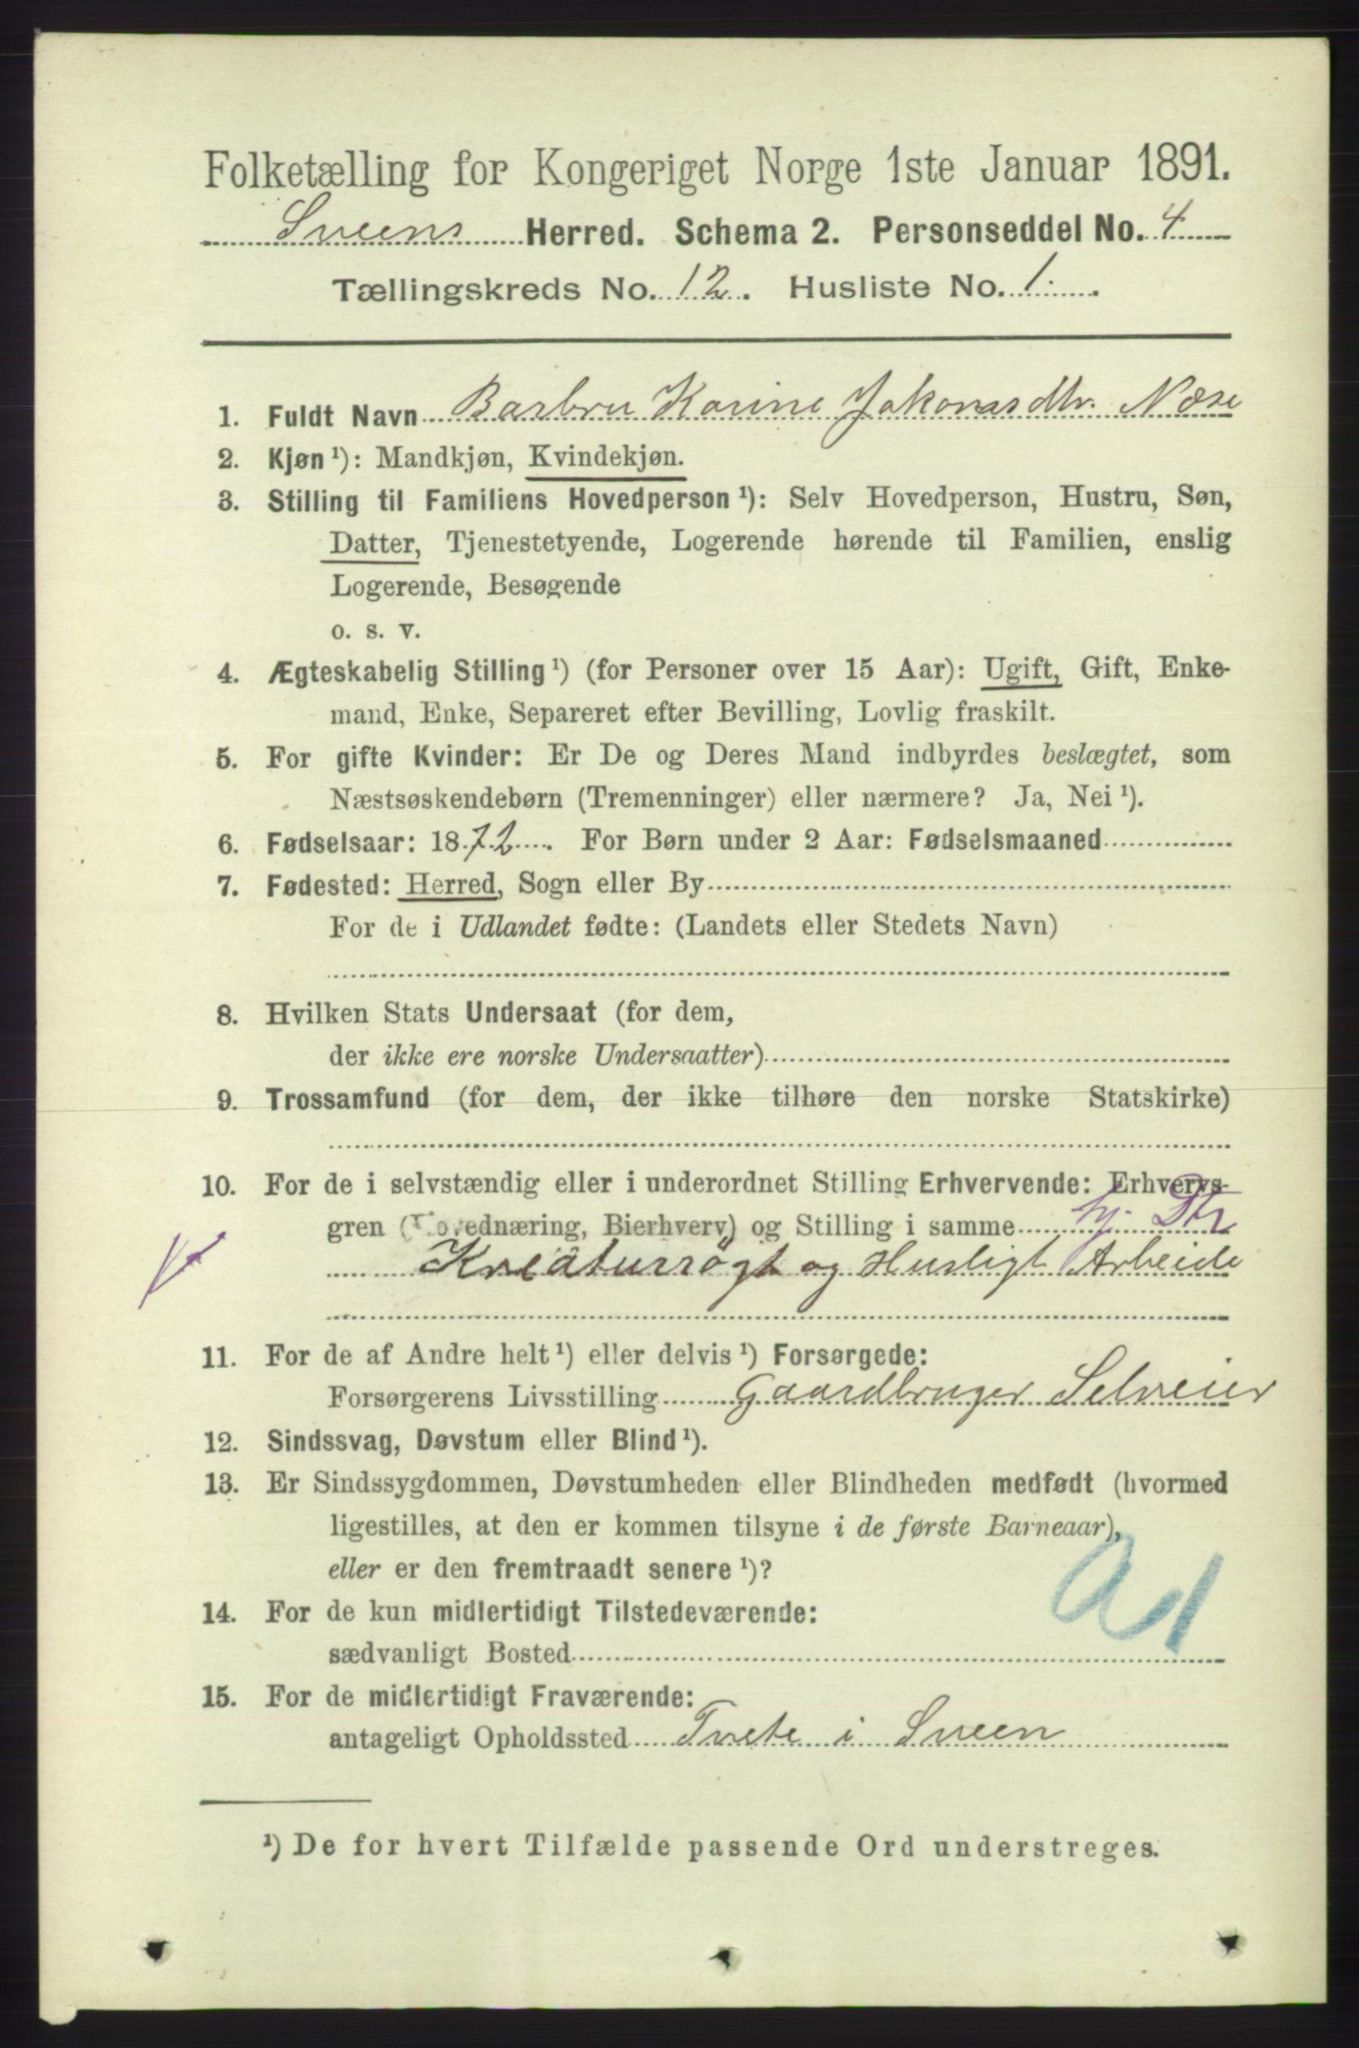 Folketælling for Kongeriget Norge 1ste Januar 1891.
Sveens Herred. Schema 2. Personseddel No. 4
Tællingskreds No. 12. Husliste No. 1.
1. Fuldt Navn Barbru Karine Jakobsdtr. Næse
2. Kjøn ¹): Mandkjøn, Kvindekjøn.
3. Stilling til Familiens Hovedperson ¹): Selv Hovedperson, Hustru, Søn,
Datter, Tjenestetyende, Logerende hørende til Familien, enslig
Logerende, Besøgende
o. s. v.
4. Ægteskabelig Stilling ¹) (for Personer over 15 Aar): Ugift, Gift, Enke-
mand, Enke, Separeret efter Bevilling, Lovlig fraskilt.
5. For gifte Kvinder: Er De og Deres Mand indbyrdes beslægtet, som
Næstsøskendebørn (Tremenninger) eller nærmere? Ja, Nei ¹).
6. Fødselsaar: 1872. For Børn under 2 Aar: Fødselsmaaned
7. Fødested: Herred, Sogn eller By
For de i Udlandet fødte: (Landets eller Stedets Navn)
8. Hvilken Stats Undersaat (for dem,
der ikke ere norske Undersaatter)
9. Trossamfund (for dem, der ikke tilhøre den norske Statskirke)
10. For de i selvstændig eller i underordnet Stilling Erhvervende: Erhvervs-
gren (Hovednæring, Bierhverv) og Stilling i samme hj. Dtr
Kreaturrøgt og Husligt Arbeide
11. For de af Andre helt ¹) eller delvis ¹) Forsørgede:
Forsørgerens Livsstilling Gaardbruger Selveier
12. Sindssvag, Døvstum eller Blind ¹).
13. Er Sindssygdommen, Døvstumheden eller Blindheden medfødt (hvormed
ligestilles, at den er kommen tilsyne i de første Barneaar),
eller er den fremtraadt senere ¹)?
14. For de kun midlertidigt Tilstedeværende:
sædvanligt Bosted
15. For de midlertidigt Fraværende:
antageligt Opholdssted Tvete i Sveen
¹) De for hvert Tilfælde passende Ord understreges.